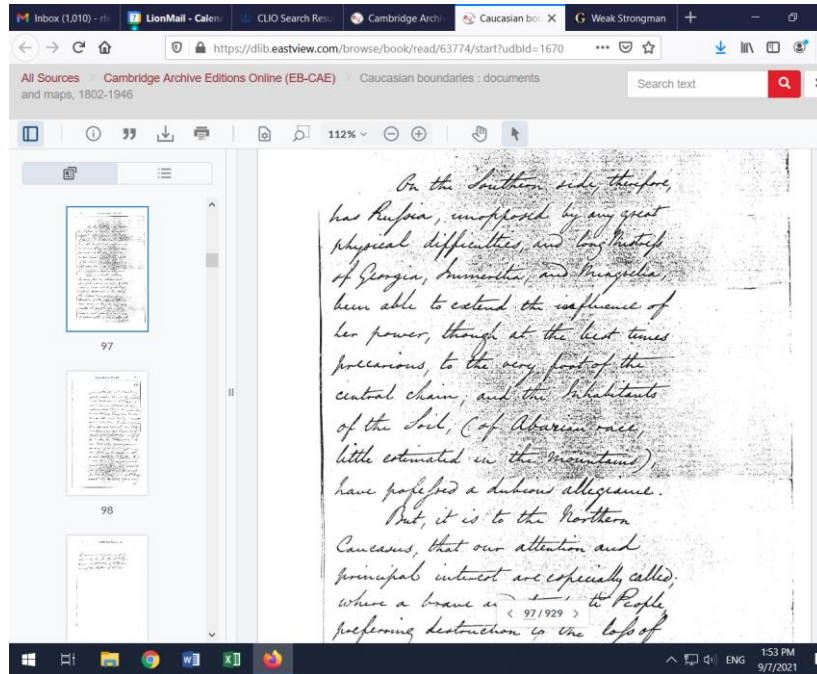 Inbox (1,010) - rh
LionMail - Calen
CLIO Search Resu
Cambridge Archiv
Caucasian bou
G Weak Strongman
https://dlib.eastview.com/browse/book/read/63774/start?udbId=1670
All Sources > Cambridge Archive Editions Online (EB-CAE) > Caucasian boundaries : documents
and maps, 1802-1946
Search text
112%
97
98
On the Southern side, therefore,
has Russia, unopposed by any great
physical difficulties, and long Mistress
of Georgia, Immeretia, and Mingrelia,
been able to extend the influence of
her power, though at the best times
precarious, to the very foot of the
central chain, and the Inhabitants
of the Soil, (of Abarian race,
little estimated in the mountains),
have professed a dubious allegiance.
But, it is to the Northern
Caucasus, that our attention and
principal interest are especially called;
where a brave People,
preferring destruction to the loss of
97 / 929
ENG
1:53 PM
9/7/2021